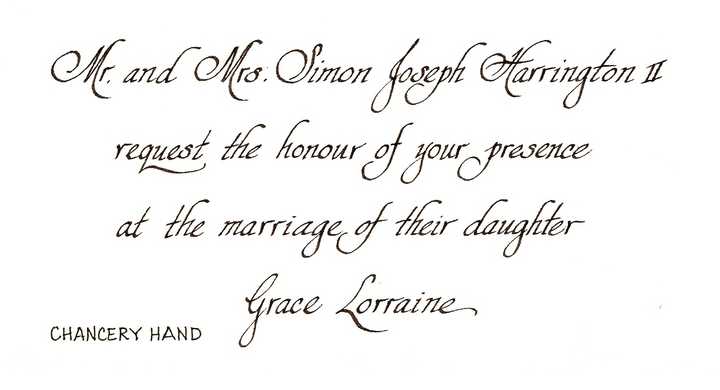 Mr. and Mrs. Simon Joseph Harrington II
request the honour of your presence
at the marriage of their daughter
Grace Lorraine
CHANCERY HAND